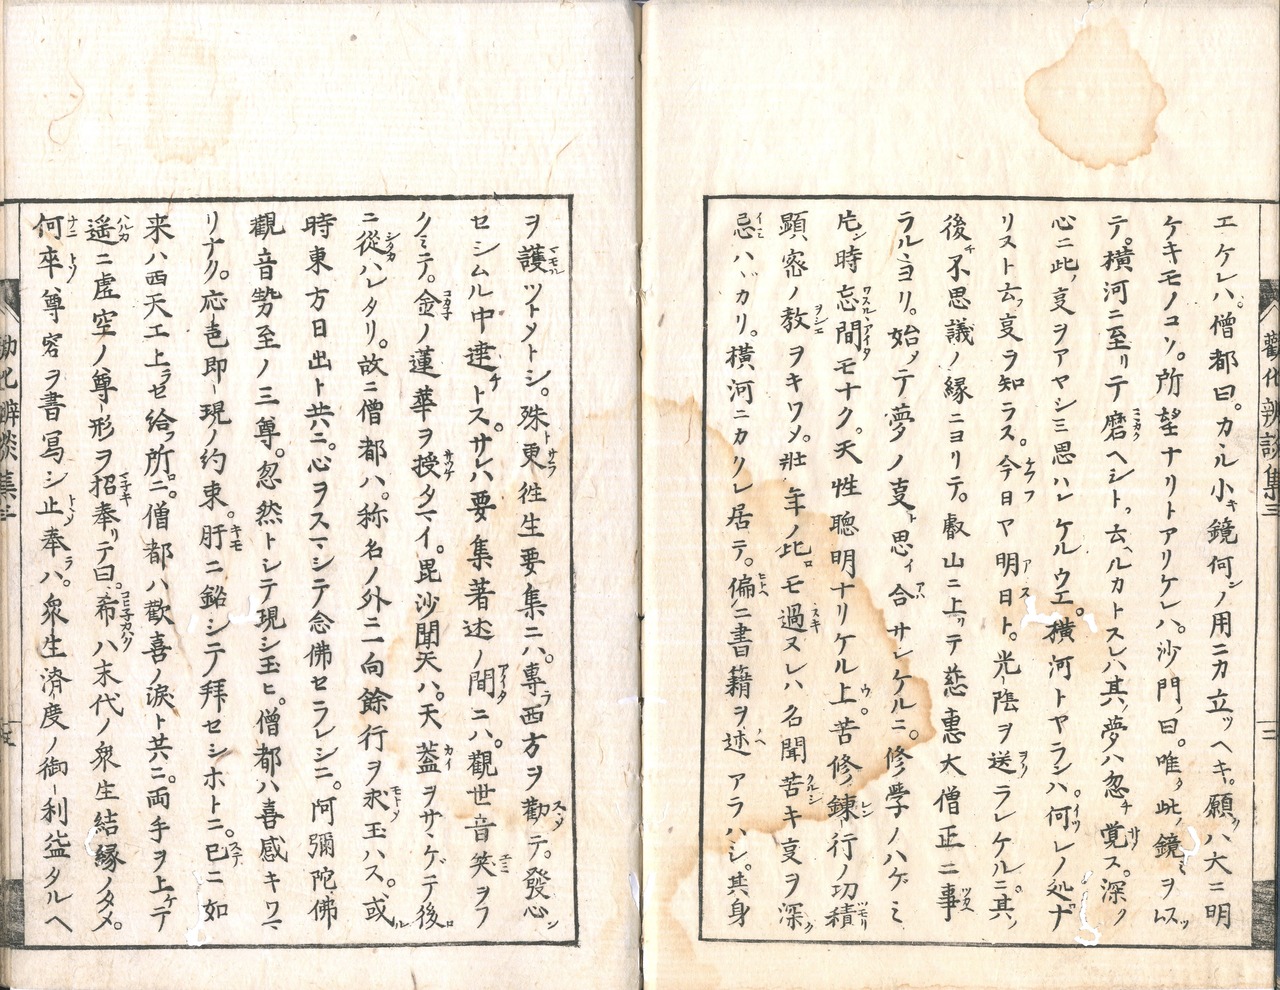 エケレハ。僧都曰。カヽル小キ鏡何ンノ用ニカ立ッヘキ。願クハ大ニ明
ケキモノコソ。所望ナリトアリケレハ。沙門ノ曰。唯タ此ノ鏡ミヲムスッ
テ。横河ニ至リテ磨ヘシトッ云ヽルカトスレハ其ノ夢ハ忽チ覚ス。深ク
心ニ此ノ叓ヲアヤシミ思ハレケルウエ。横河トヤランハ何レノ処ナ
リヌト云フ叓ヲ知ラス。今日ヤ明日ト。光陰ヲ送ラレケルニ。其ノ
後チ不思議ノ縁ニヨリテ。叡山ニ上ッテ慈惠大僧正ニ事
ラルヽヨリ。始メテ夢ノ叓ト思イ合サンケルニ。修學ノハゲミ
片ン時忘間モナク。天性聰明ナリケル上。苦修鍊行ノ功積
顕密ノ教ヲキワメ。壯年ノ比ロモ過ヌレハ名聞苦キ叓ヲ深ク
忌ハヾカリ。横河ニカクレ居テ。偏ニ書籍ヲ述アラハシ。其身
ヲ護ツトメトシ。殊更徃生要集ニハ。專ラ西方ヲ勸テ。發心ン
セシムル中達チトス。サレハ要集著述ノ間ニハ。觀世音笑ヲフ
クミテ。金ノ蓮華ヲ授タマイ。毘沙聞天ハ。天蓋ヲサヽゲテ後ロ
ニ從ハレタリ。故ニ僧都ハ。称名ノ外ニ向餘行ヲ求玉ハス。或ル
時東方日出ト共ニ。心ヲスマシテ念佛セラレシニ。阿彌陀佛
觀音勢至ノ三尊。忽然トシテ現シ玉ヒ。僧都ハ喜感キワマ
リナク。応色即現ノ約束。肝ニ銘シテノ拜セシホトニ。已ニ如
来ハ西天エ上ラセ給フ所ニ。僧都ハ歡喜ノ淚ト共ニ。両手ヲ上ケテ
遥ニ虚空ノ尊形ヲ招奉リテ曰。希ハ末代ノ衆生結縁ノタメ。
何卒尊容ヲ書寫シ止奉ラハ。衆生済度ノ御利益タルヘ
勸化辨談集三